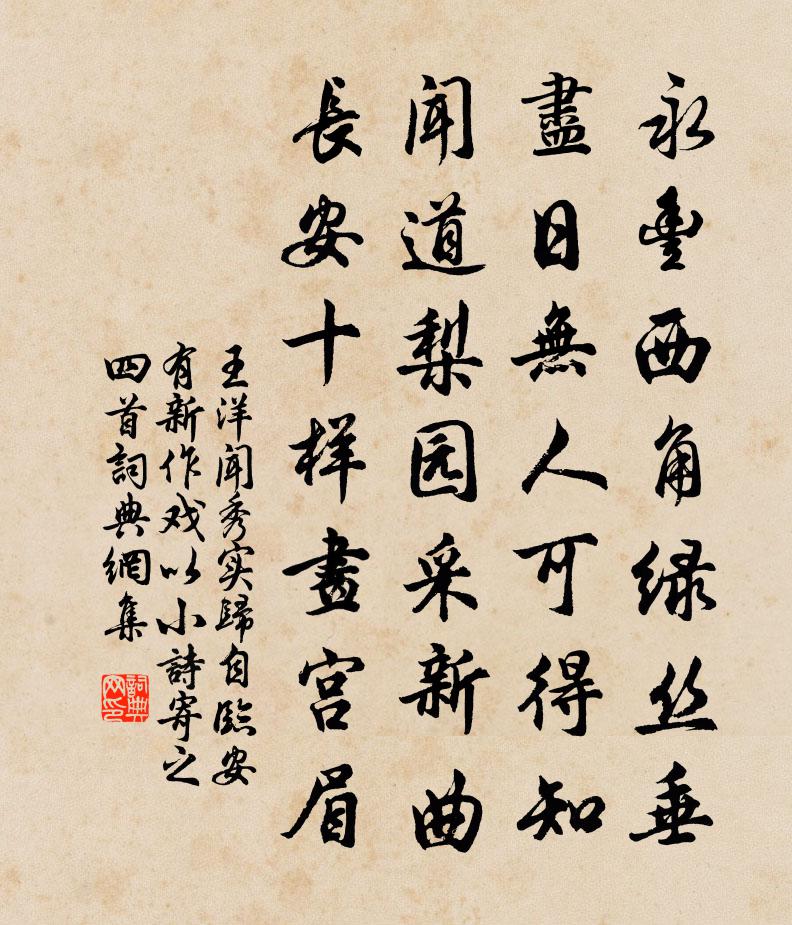 永豐西角绿丝垂
盡日無人可得知
闻道梨园采新曲
長安十样畫宫眉
王洋闻秀实歸自臨安
有新作戏以小詩寄之
四首詞典網集
詞典
网印